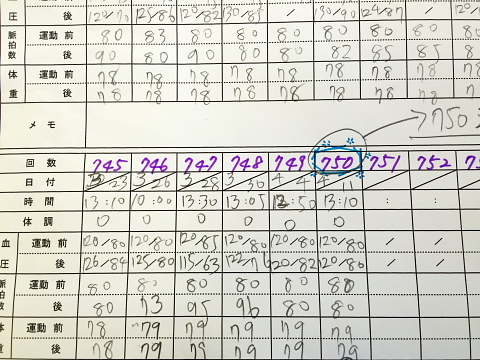 圧 後 120/70 125/86 120/82 130/85 / 130/90 124/87 /
脈拍数 運動前 80 83 80 80 80 80 80 80 80
後 90 80 90 80 80 82 85 85
体重 運動前 78 78 78 78 78 78 78 78
後 78 78 78 78 78 78 78 78
メモ 750
回数 745 746 747 748 749 750 751 752
日付 3/23 3/26 3/28 3/30 4/4 4/11
時間 13:10 10:00 13:30 13:05 13:50 13:10 : :
体調 0 0 0 0 0 0
血圧 運動前 120/80 120/80 120/85 120/80 120/80 120/80 / /
後 126/84 125/80 115/63 122/76 120/82 120/80 / /
脈拍数 運動前 80 80 80 80 80 80
後 80 73 95 96 80 80
体重 運動前 78 79 79 79 79 79
後 78 79 79 79 79 79